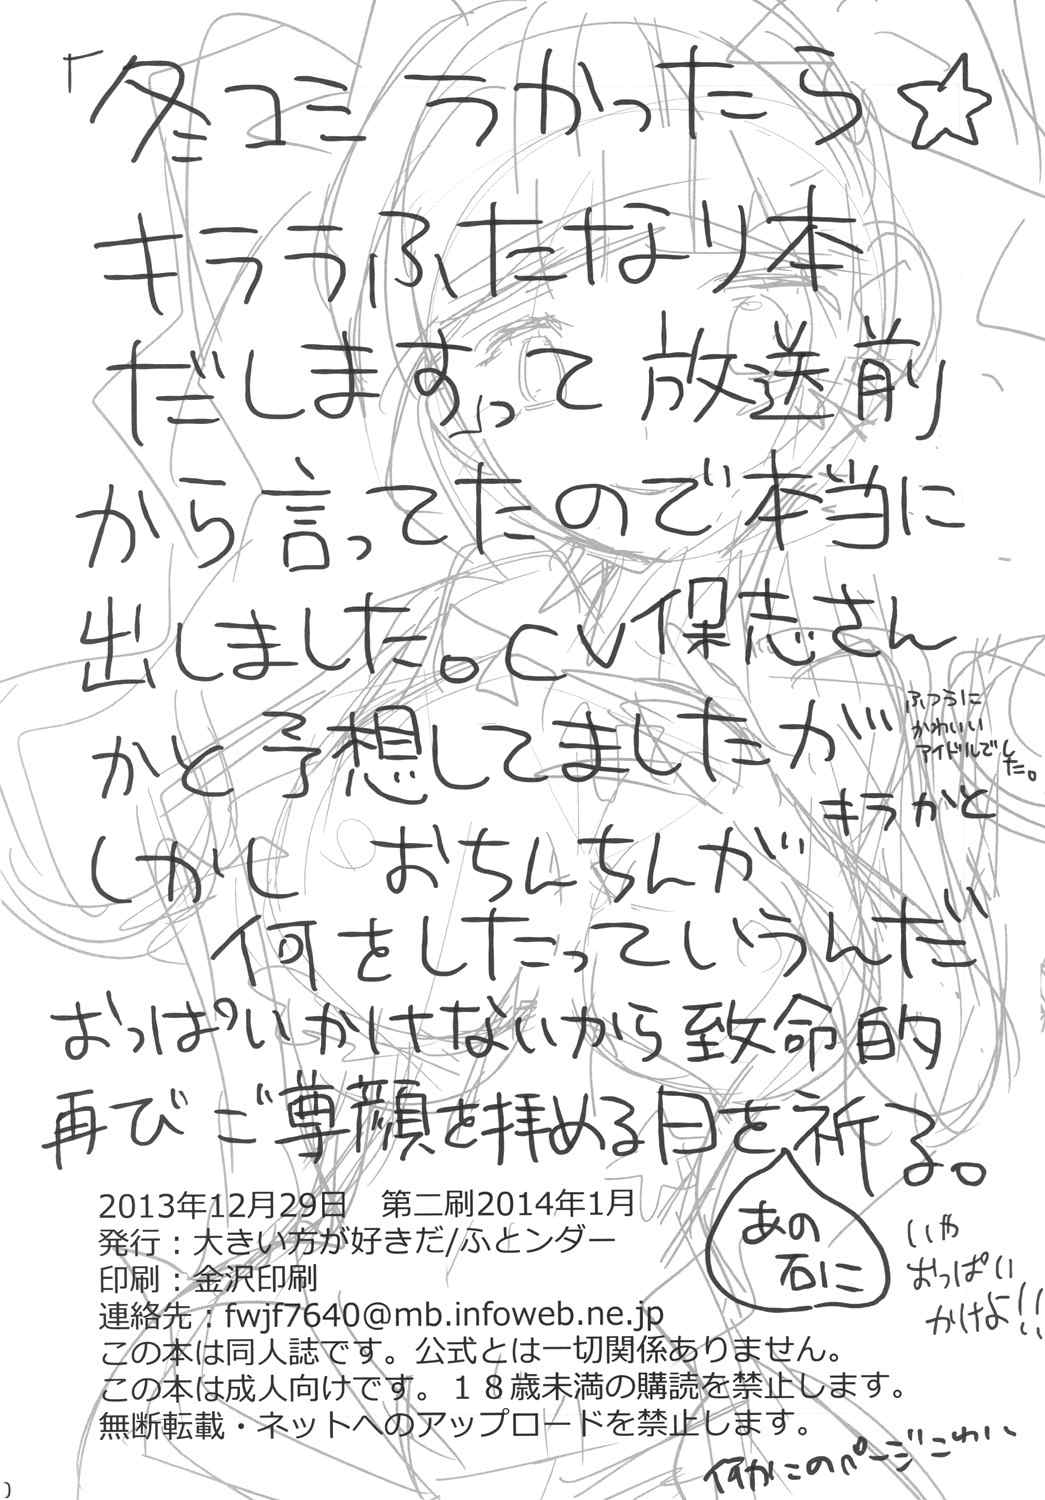 「冬コミ うかったら☆
キララふたなり本
だします」って 放送前
から言ってたので本当に
出しました。CV保志さん
かと予想してましたが
ふつうに
かわいい
アイドルでした。
キラかと
しかし おちんちんが
何をしたっていうんだ
おっぱいかけないから致命的
再びご尊顔を拝める日を祈る。
あの
石に
いや
おっぱい
かけよ!!
2013年12月29日 第二刷2014年1月
発行：大きい方が好きだ/ふとンダー
印刷：金沢印刷
連絡先：fwjf7640@mb.infoweb.ne.jp
この本は同人誌です。公式とは一切関係ありません。
この本は成人向けです。１８歳未満の購読を禁止します。
無断転載・ネットへのアップロードを禁止します。
何かこのページこわい